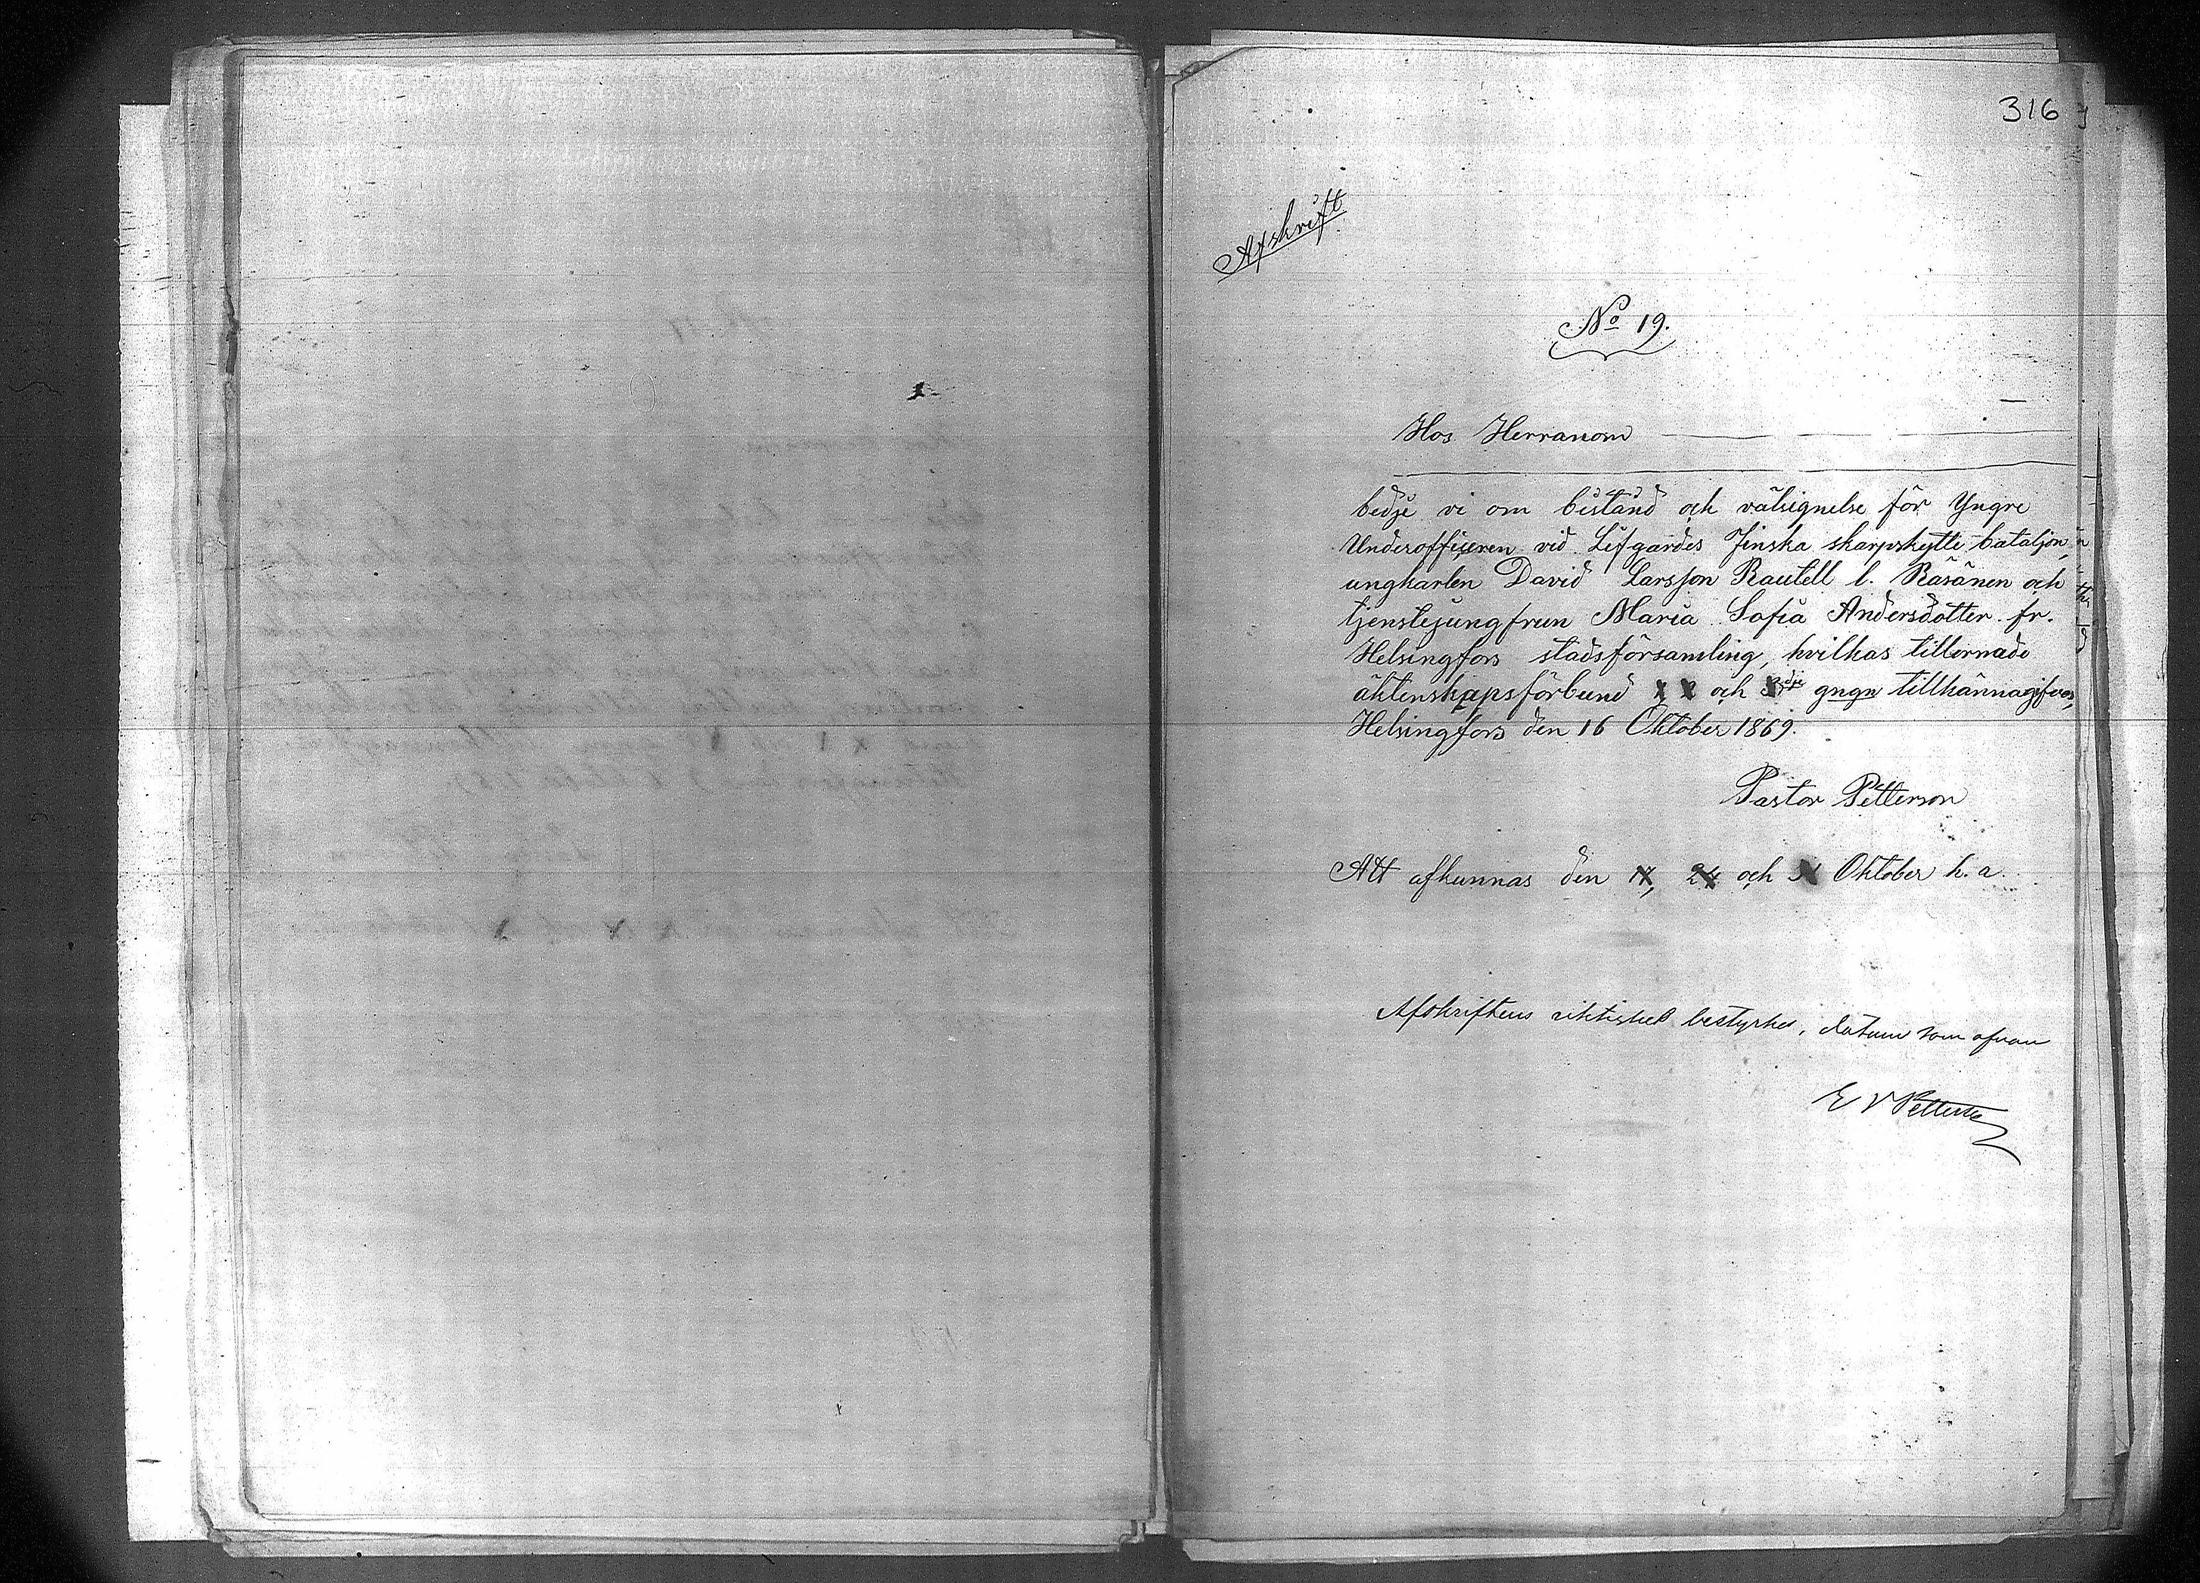 316
Afskrift
No 19.
Hos Herranom
bedje vi om bistånd och välsignelse för Yngre
Underofficeren vid Lifgardes Finska skarpskytte bataljon,
ungkarlen David Larsson Rautell l. Räsänen och
tjenstejungfrun Maria Sofia Andersdotter fr.
Helsingfors stadsförsamling, hvilkas tillernade
äktenskapsförbund och 3dje gngn tillkännagifves,
Helsingfors den 16 Oktober 1869.
Pastor Petterson
Att afkunnas den 17, 24 och 31 Oktober h. a.
Afskriftens riktighet bestyrker, datum som ofvan
E V Petterson